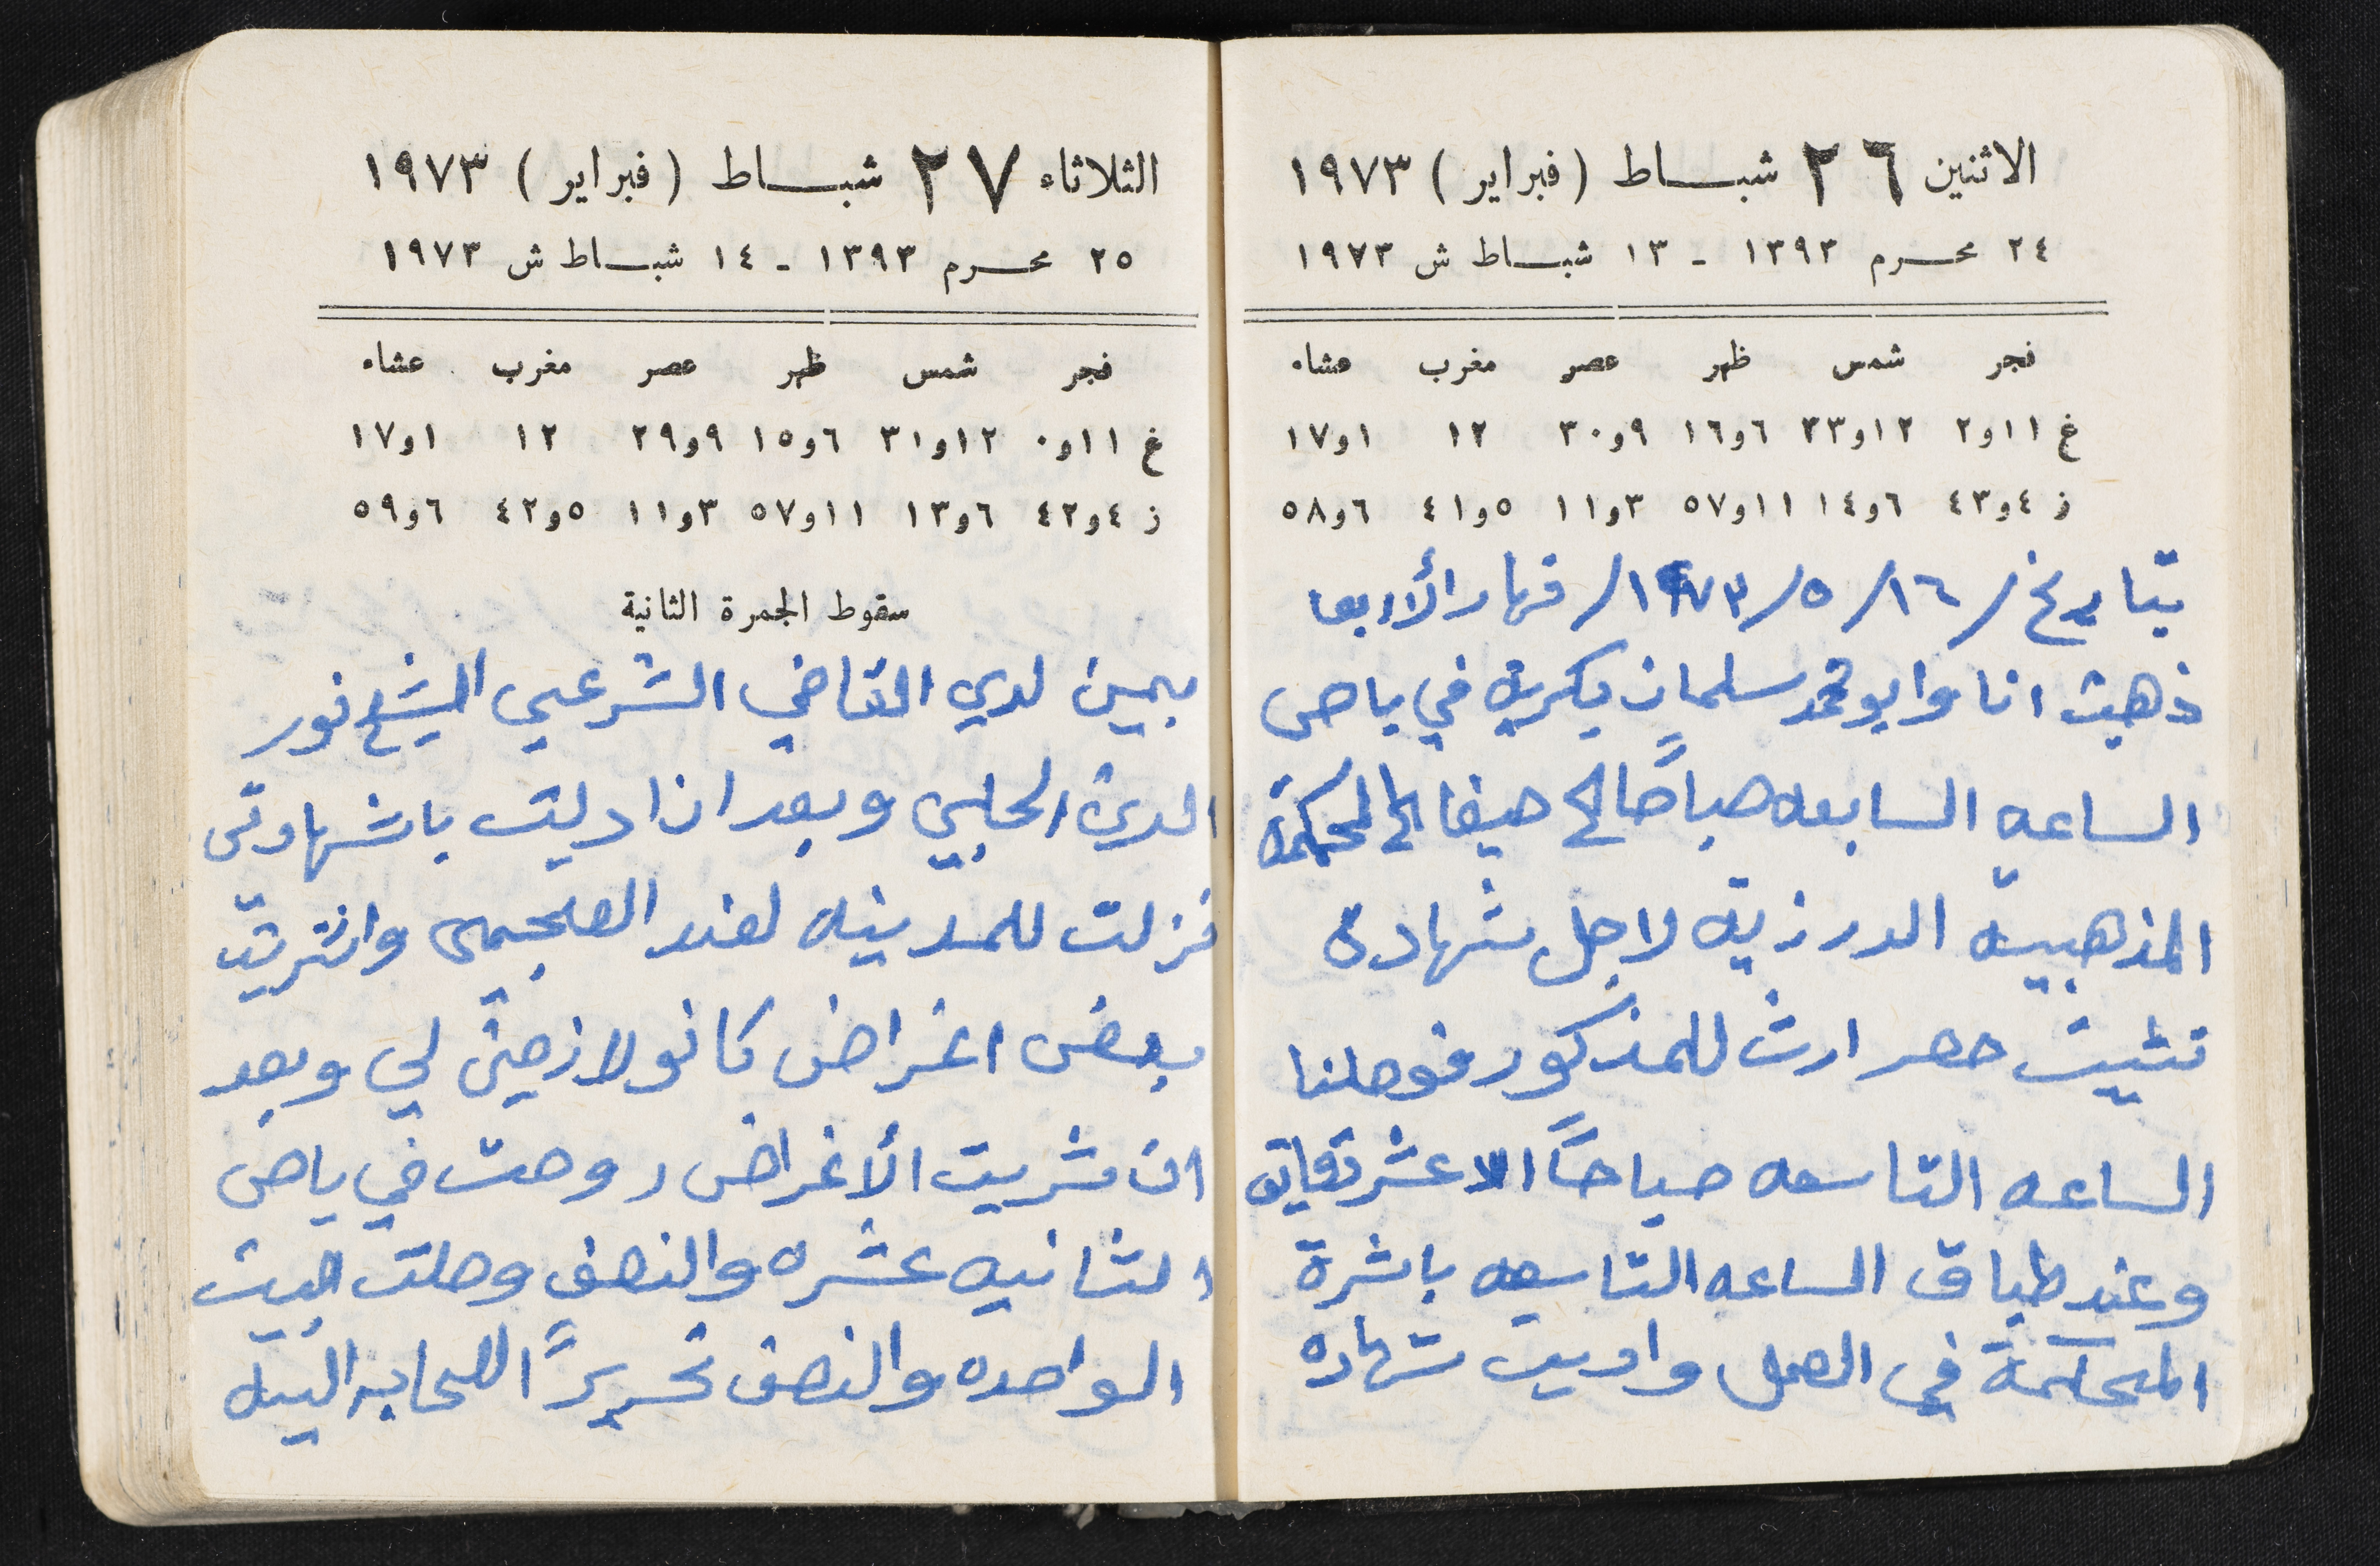 الاثنين ٢٦ شبـــاط (فبراير) ١٩٧٣
٢٤ محـرم ١٣٩٣ - ١٣ شبـــاط ش ١٩٧٣
فجر شمس ظهر عصر مغرب عشاء
غ ١١و٢ ١٢و٣٣ ٦و١٦ ٩و٣٠ ١٢ ١و١٧
ز ٤و٤٣ ٦و١٤ ١١و٥٧ ٣و١١ ٥و٤١ ٦و٥٨
بتاريخ /١٦/ ٥/ ١٩٧٣/ نهار الأربعا
ذهبت انا وابو محمد سلمان بكريه في باص
الساعه السابعه صباحًا الى حيفا الى المحكمة
المذهبيه الدرزيه لاجل شهادة
تثبيت حصر ارث للمذكور فوصلنا
الساعه التاسعه صباحاً الا عشر دقايق
وعند طباق الساعه التاسعه باشرة
المحكمة في العمل واديت شهاده
الثلاثاء ٢٧ شبـــاط (فبراير) ١٩٧٣
٢٥ محـرم ١٣٩٣ - ١٤ شبـــاط ش ١٩٧٣
فجر شمس ظهر عصر مغرب عشاء
غ ١١و٠ ١٢و٣١ ٦و١٥ ٩و٢٩ ١٢ ١و١٧
ز ٤و٤٢ ٦و١٣ ١١و٥٧ ٣و١١ ٥و٤٢ ٦و٥٩
سقوط الجمرة الثانية
بيمين لدى القاضي الشرعي الشيخ نور
الدين الحلبي وبعد ان ادليت باشهادتي
نزلت للمدينه لعند واشتريت
بعض اغراض كانو لازمين لي وبعد
ان شريت الأغراض روحت في باص
الثانيه عشره والنصف وصلت البيت
الواحده والنصف تحريرًا